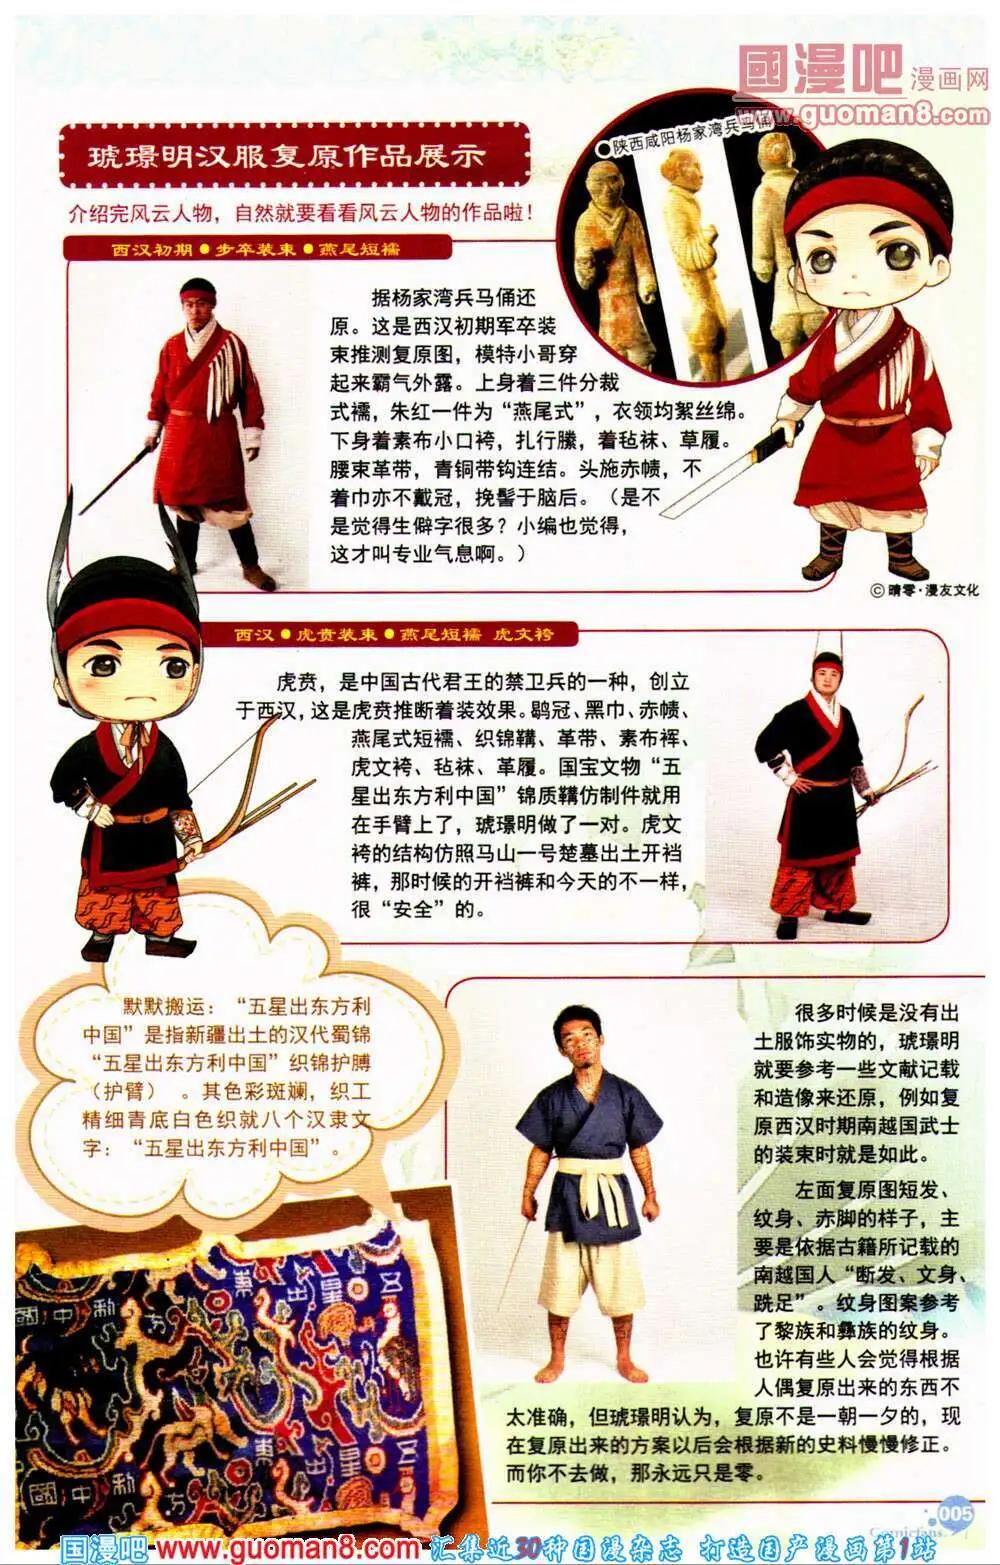 國漫吧 漫画网
www.guoman8.com
琥璟明汉服复原作品展示
陕西咸阳杨家湾兵马俑
介绍完风云人物，自然就要看看风云人物的作品啦！
西汉初期●步卒装束●燕尾短襦
据杨家湾兵马俑还
原。这是西汉初期军卒装
束推测复原图，模特小哥穿
起来霸气外露。上身着三件分裁
式襦，朱红一件为“燕尾式”，衣领均絮丝绵。
下身着素布小口袴，扎行縢，着毡袜、草履。
腰束革带，青铜带钩连结。头施赤帻，不
着巾亦不戴冠，挽髻于脑后。（是不
是觉得生僻字很多？小编也觉得，
这才叫专业气息啊。）
©晴零·漫友文化
西汉●虎贲装束●燕尾短襦 虎文袴
虎贲，是中国古代君王的禁卫兵的一种，创立
于西汉，这是虎贲推断着装效果。鹖冠、黑巾、赤帻、
燕尾式短襦、织锦鞲、革带、素布裈、
虎文袴、毡袜、革履。国宝文物“五
星出东方利中国”锦质鞲仿制件就用
在手臂上了，琥璟明做了一对。虎文
袴的结构仿照马山一号楚墓出土开裆
裤，那时候的开裆裤和今天的不一样，
很“安全”的。
默默搬运：“五星出东方利
中国”是指新疆出土的汉代蜀锦
“五星出东方利中国”织锦护膊
（护臂）。其色彩斑斓，织工
精细青底白色织就八个汉隶文
字：“五星出东方利中国”。
很多时候是没有出
土服饰实物的，琥璟明
就要参考一些文献记载
和造像来还原，例如复
原西汉时期南越国武士
的装束时就是如此。
左面复原图短发、
纹身、赤脚的样子，主
要是依据古籍所记载的
南越国人“断发、文身、
跣足”。纹身图案参考
了黎族和彝族的纹身。
也许有些人会觉得根据
人偶复原出来的东西不
太准确，但琥璟明认为，复原不是一朝一夕的，现
在复原出来的方案以后会根据新的史料慢慢修正。
而你不去做，那永远只是零。
國中利 東出星五
國中 方
005
Comicfans
国漫吧 www.guoman8.com 汇集近30种国漫杂志 打造国产漫画第1站